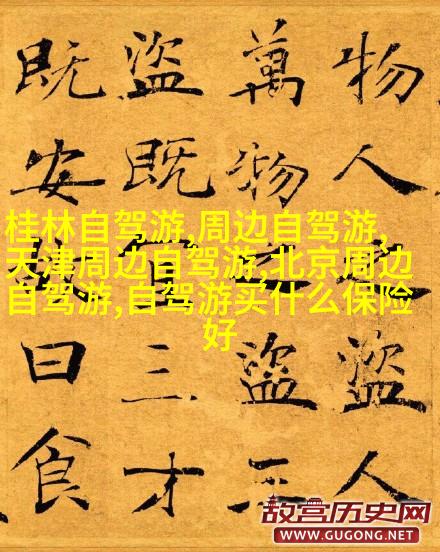 物人之盜人
萬物之盜三
盜既宜三才
既安故曰食
桂林自驾游,周边自驾游,
天津周边自驾游,北京周边
自驾游,自驾游买什么保险
好
故宫历史网
WWW.GUGONG.NET